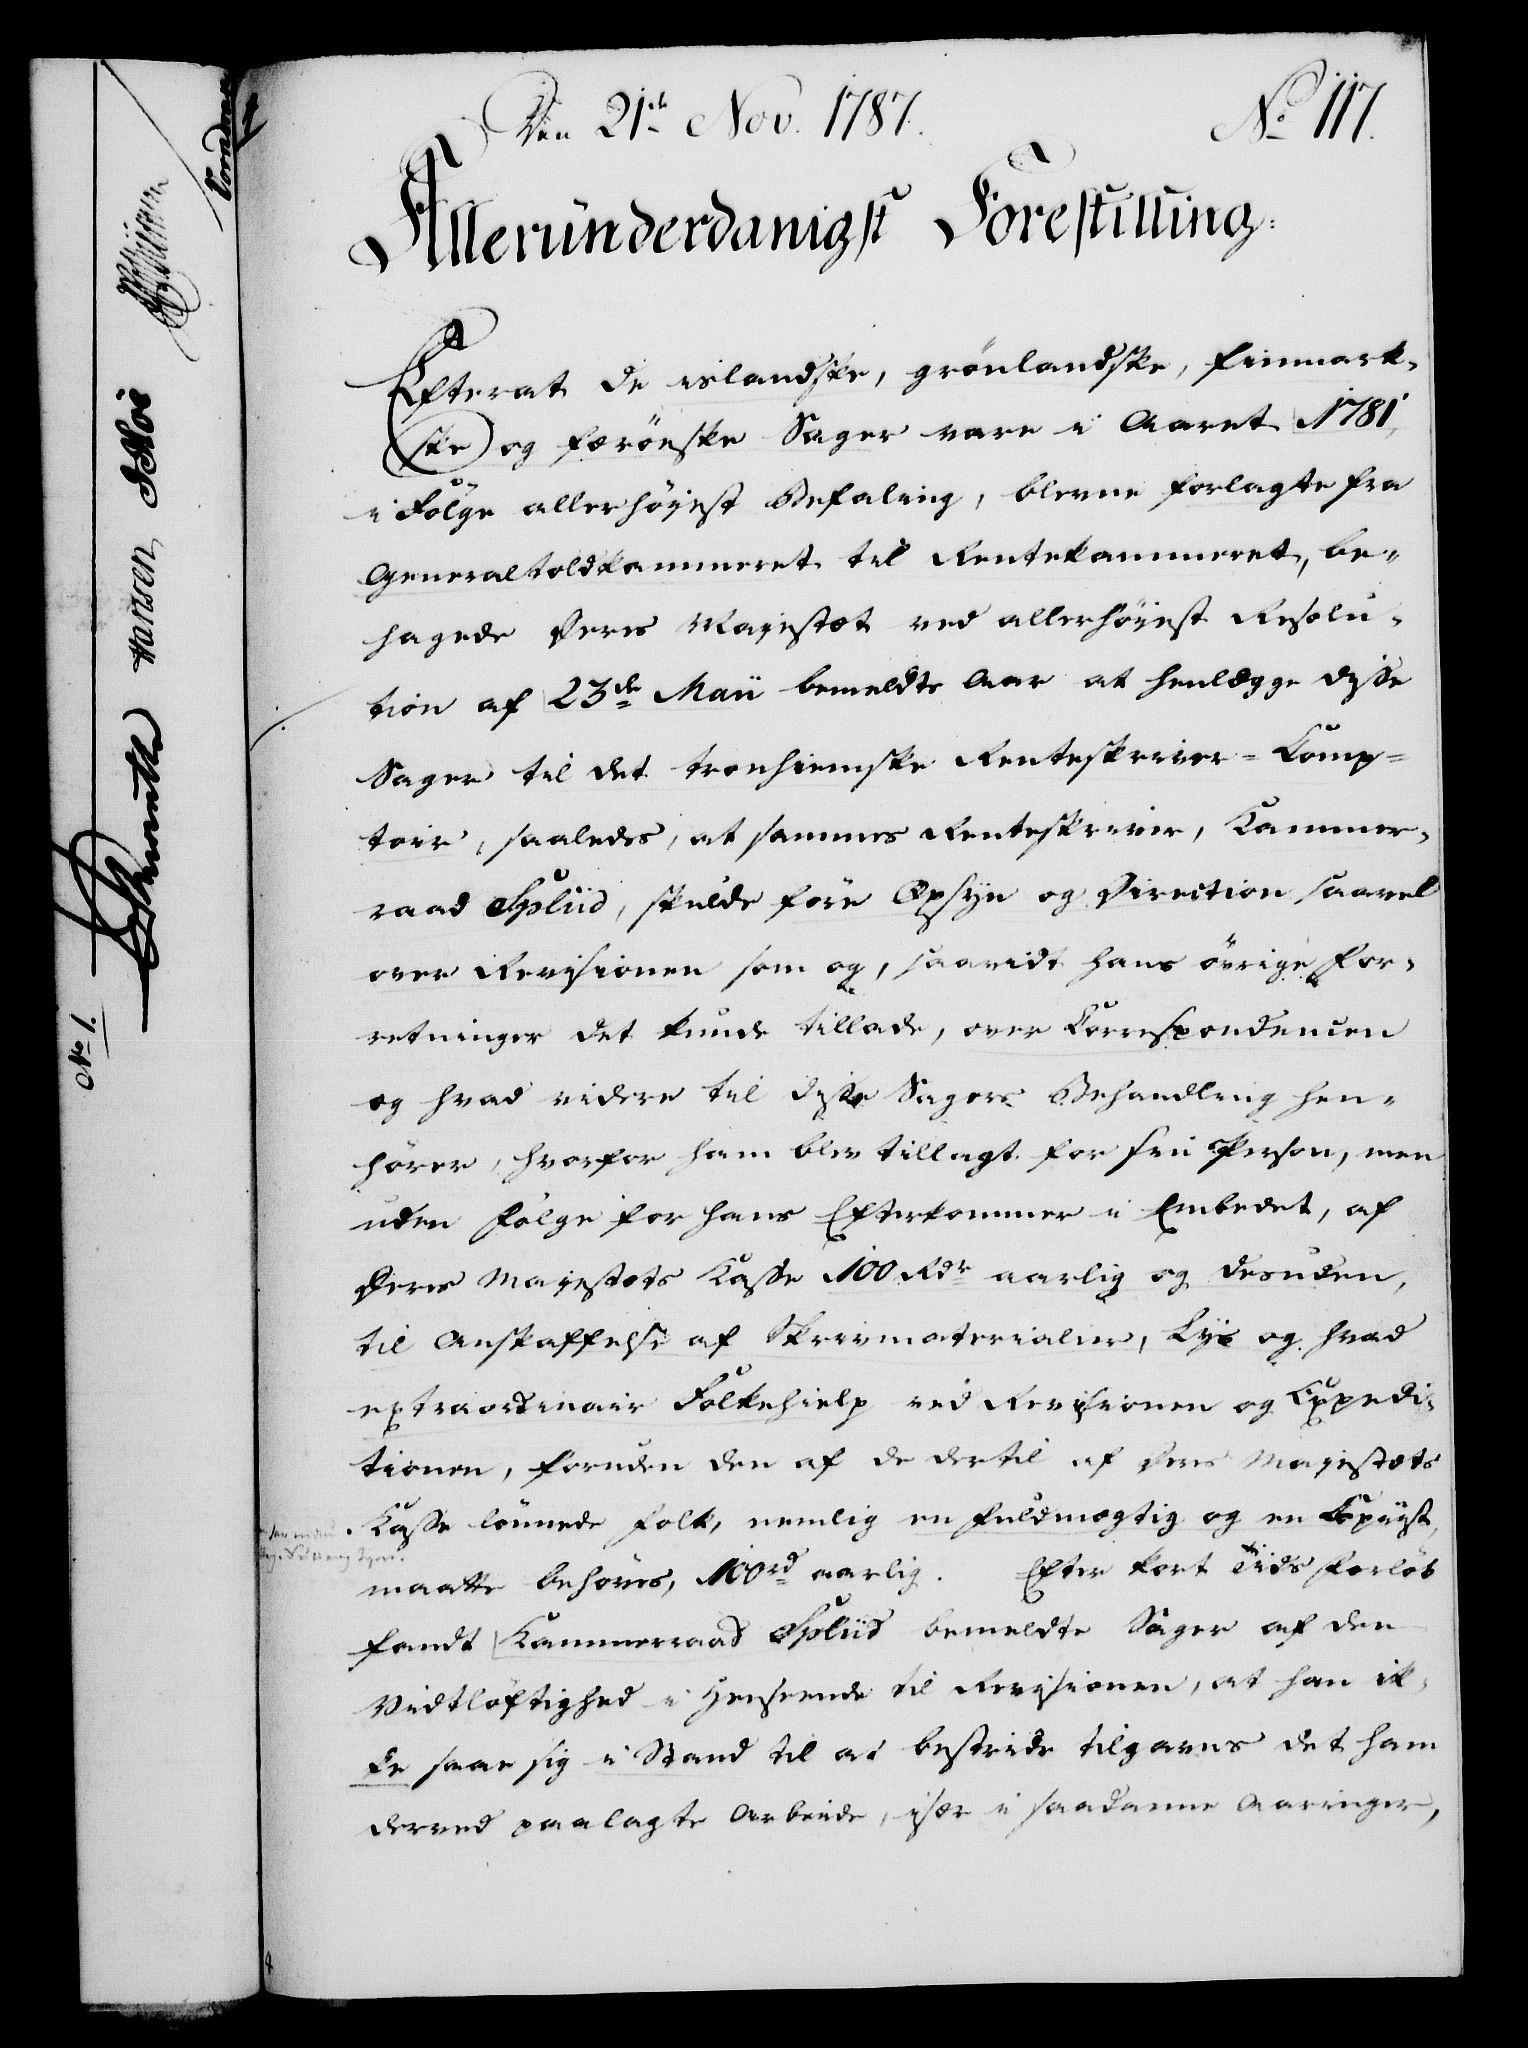 Den 21de Nov. 1787.
No 117.
Alleründerdanigst Forestilling.
Efterat de islandske, grönlandske, finmark-
ske og færöeske Sager vare i Aaret 1781,
i Fölge allerhöyest Befaling, blevne forlagte fra
Generaltoldkammeret til Rentekammeret, be-
hagede Deres Majestæt ved allerhöyest Resolu-
tion af 23de Maii bemeldte Aar at henlægge disse
Sager til det tronhiemske Renteskriver-Comp-
toir, saaledes, at sammes Renteskriver, Kammer-
raad Spliid, skulde före Opsyn og Direction saavel
over Revisionen som og, saavidt hans övrige For-
retninger det kunde tillade, over Correspondencen
og hvad videre til disse Sagers Behandling hen-
hörer, hvorfor ham blev tillagt for sin Person, men
uden Fölge for hans Efterkommer i Embedet, af
Deres Majestæts Kasse 100 Rdr aarlig og desuden,
til Anskaffelse af Skrivmaterialier, Lys og hvad
extraordinair Folkehielp ved Revisionen og Expedi-
tionen, foruden den af de dertil af Deres Majestæts
Kasse lönnede Folk, nemlig en Fuldmægtig og en Copiist,
maatte behöves, 100rd aarlig. Efter kort Tids Forlöb
fandt Kammerraad Spliid bemeldte Sager af den
Vidtlöftighed i Henseende til Revisionen, at han ik-
ke saae sig i Stand til at bestride tilgavns det ham
derved paalagte Arbeide, især i saadanne Aaringer,
No 1.
Hansen